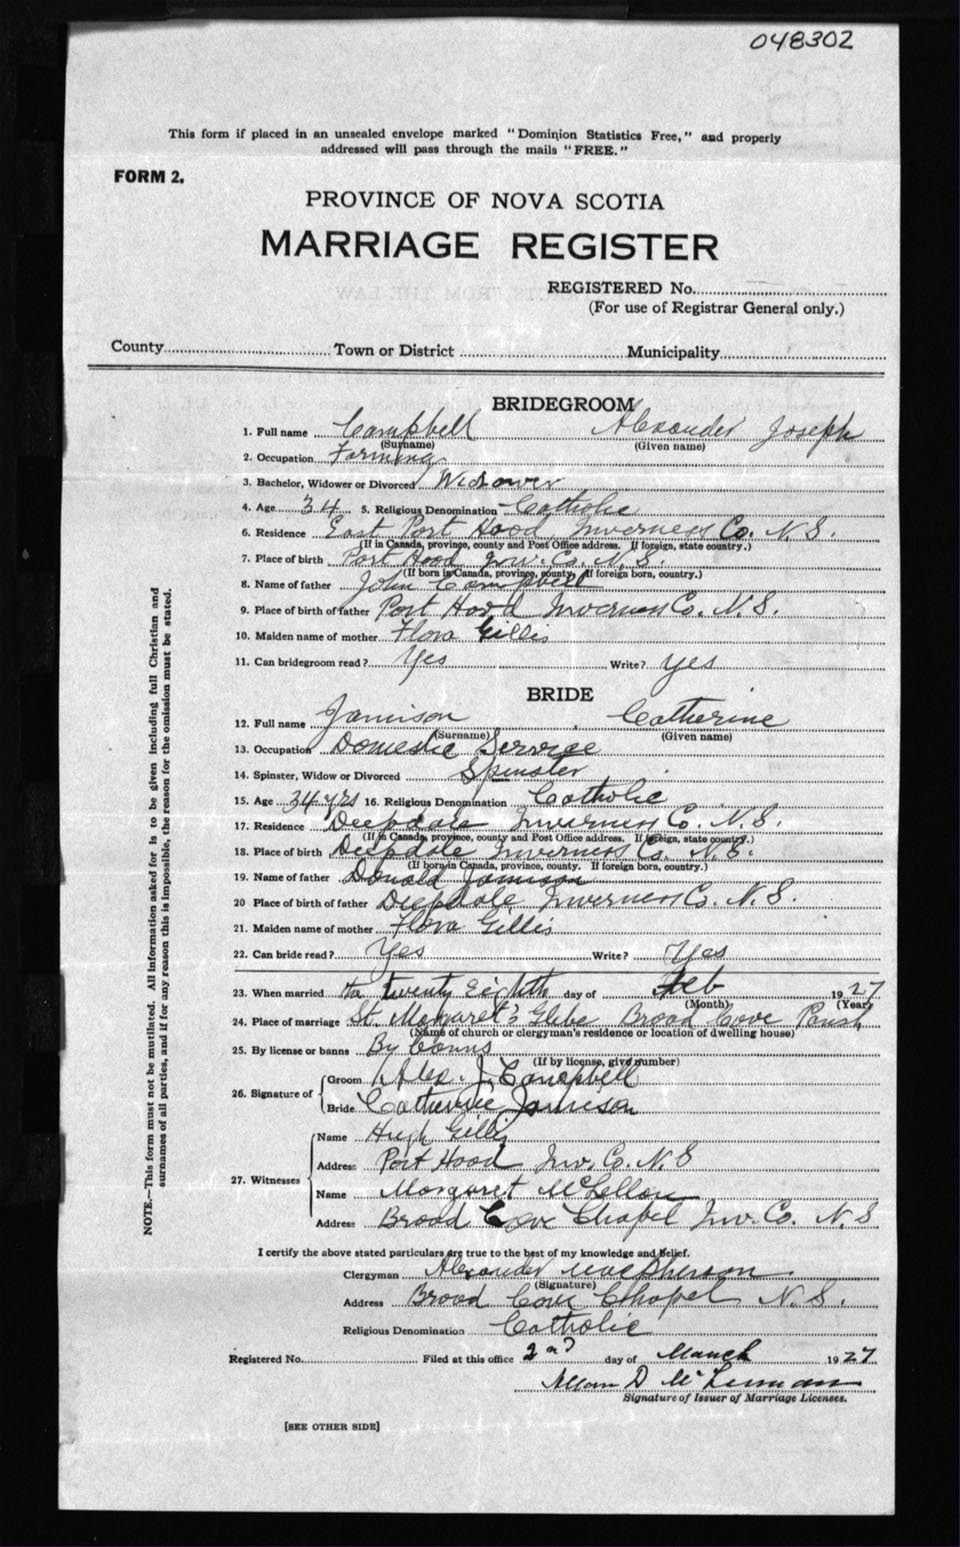 048302
This form if placed in an unsealed envelope marked "Dominion Statistics Free," and properly
addressed will pass through the mails "FREE."
FORM 2.
PROVINCE OF NOVA SCOTIA
MARRIAGE REGISTER
REGISTERED No.
(For use of Registrar General only.)
County Town or District Municipality
BRIDEGROOM
1. Full name Campbell Alexander Joseph
(Surname) (Given name)
2. Occupation Farming
3. Bachelor, Widower or Divorced Widower
4. Age 34 5. Religious Denomination Catholic
6. Residence East Port Hood Inverness Co. N. S.
(If in Canada, province, county and Post Office address. If foreign, state country.)
7. Place of birth Port Hood Inv. Co. N. S.
(If born in Canada, province, county. If foreign born, country.)
8. Name of father John Campbell
9. Place of birth of father Port Hood Inverness Co. N. S.
10. Maiden name of mother Flora Gillis
11. Can bridegroom read? Yes Write? yes
BRIDE
12. Full name Jamison Catherine
(Surname) (Given name)
13. Occupation Domestic Service
14. Spinster, Widow or Divorced Spinster
15. Age 34 yrs 16. Religious Denomination Catholic
17. Residence Deepdale Inverness Co. N. S.
(If in Canada, province, county and Post Office address. If foreign, state country.)
18. Place of birth Deepdale Inverness Co. N. S.
(If born in Canada, province, county. If foreign born, country.)
19. Name of father Donald Jamison
20 Place of birth of father Deepdale Inverness Co. N. S.
21. Maiden name of mother Flora Gillis
22. Can bride read? Yes Write? Yes
23. When married the twenty eighth day of Feb 1927
(Month) (Year)
24. Place of marriage St. Margaret's Glebe Broad Cove Parish
(Name of church or clergyman's residence or location of dwelling house)
25. By license or banns By banns
(If by license, give number)
26. Signature of Groom Alex. J. Campbell
Bride Catherine Jamison
27. Witnesses Name Hugh Gillis
Address Port Hood Inv. Co. N. S
Name Margaret McLellan
Address Broad Cove Chapel Inv. Co. N. S
I certify the above stated particulars are true to the best of my knowledge and belief.
Clergyman Alexander MacPherson
(Signature)
Address Broad Cove Chapel N. S.
Religious Denomination Catholic
Registered No. Filed at this office 2nd day of March 1927
Allan D
Signature of Issuer of Marriage Licenses.
[SEE OTHER SIDE]
NOTE.—This form must not be mutilated. All information asked for is to be given including full Christian and
surnames of all parties, and if for any reason this is impossible, the reason for the omission must be stated.